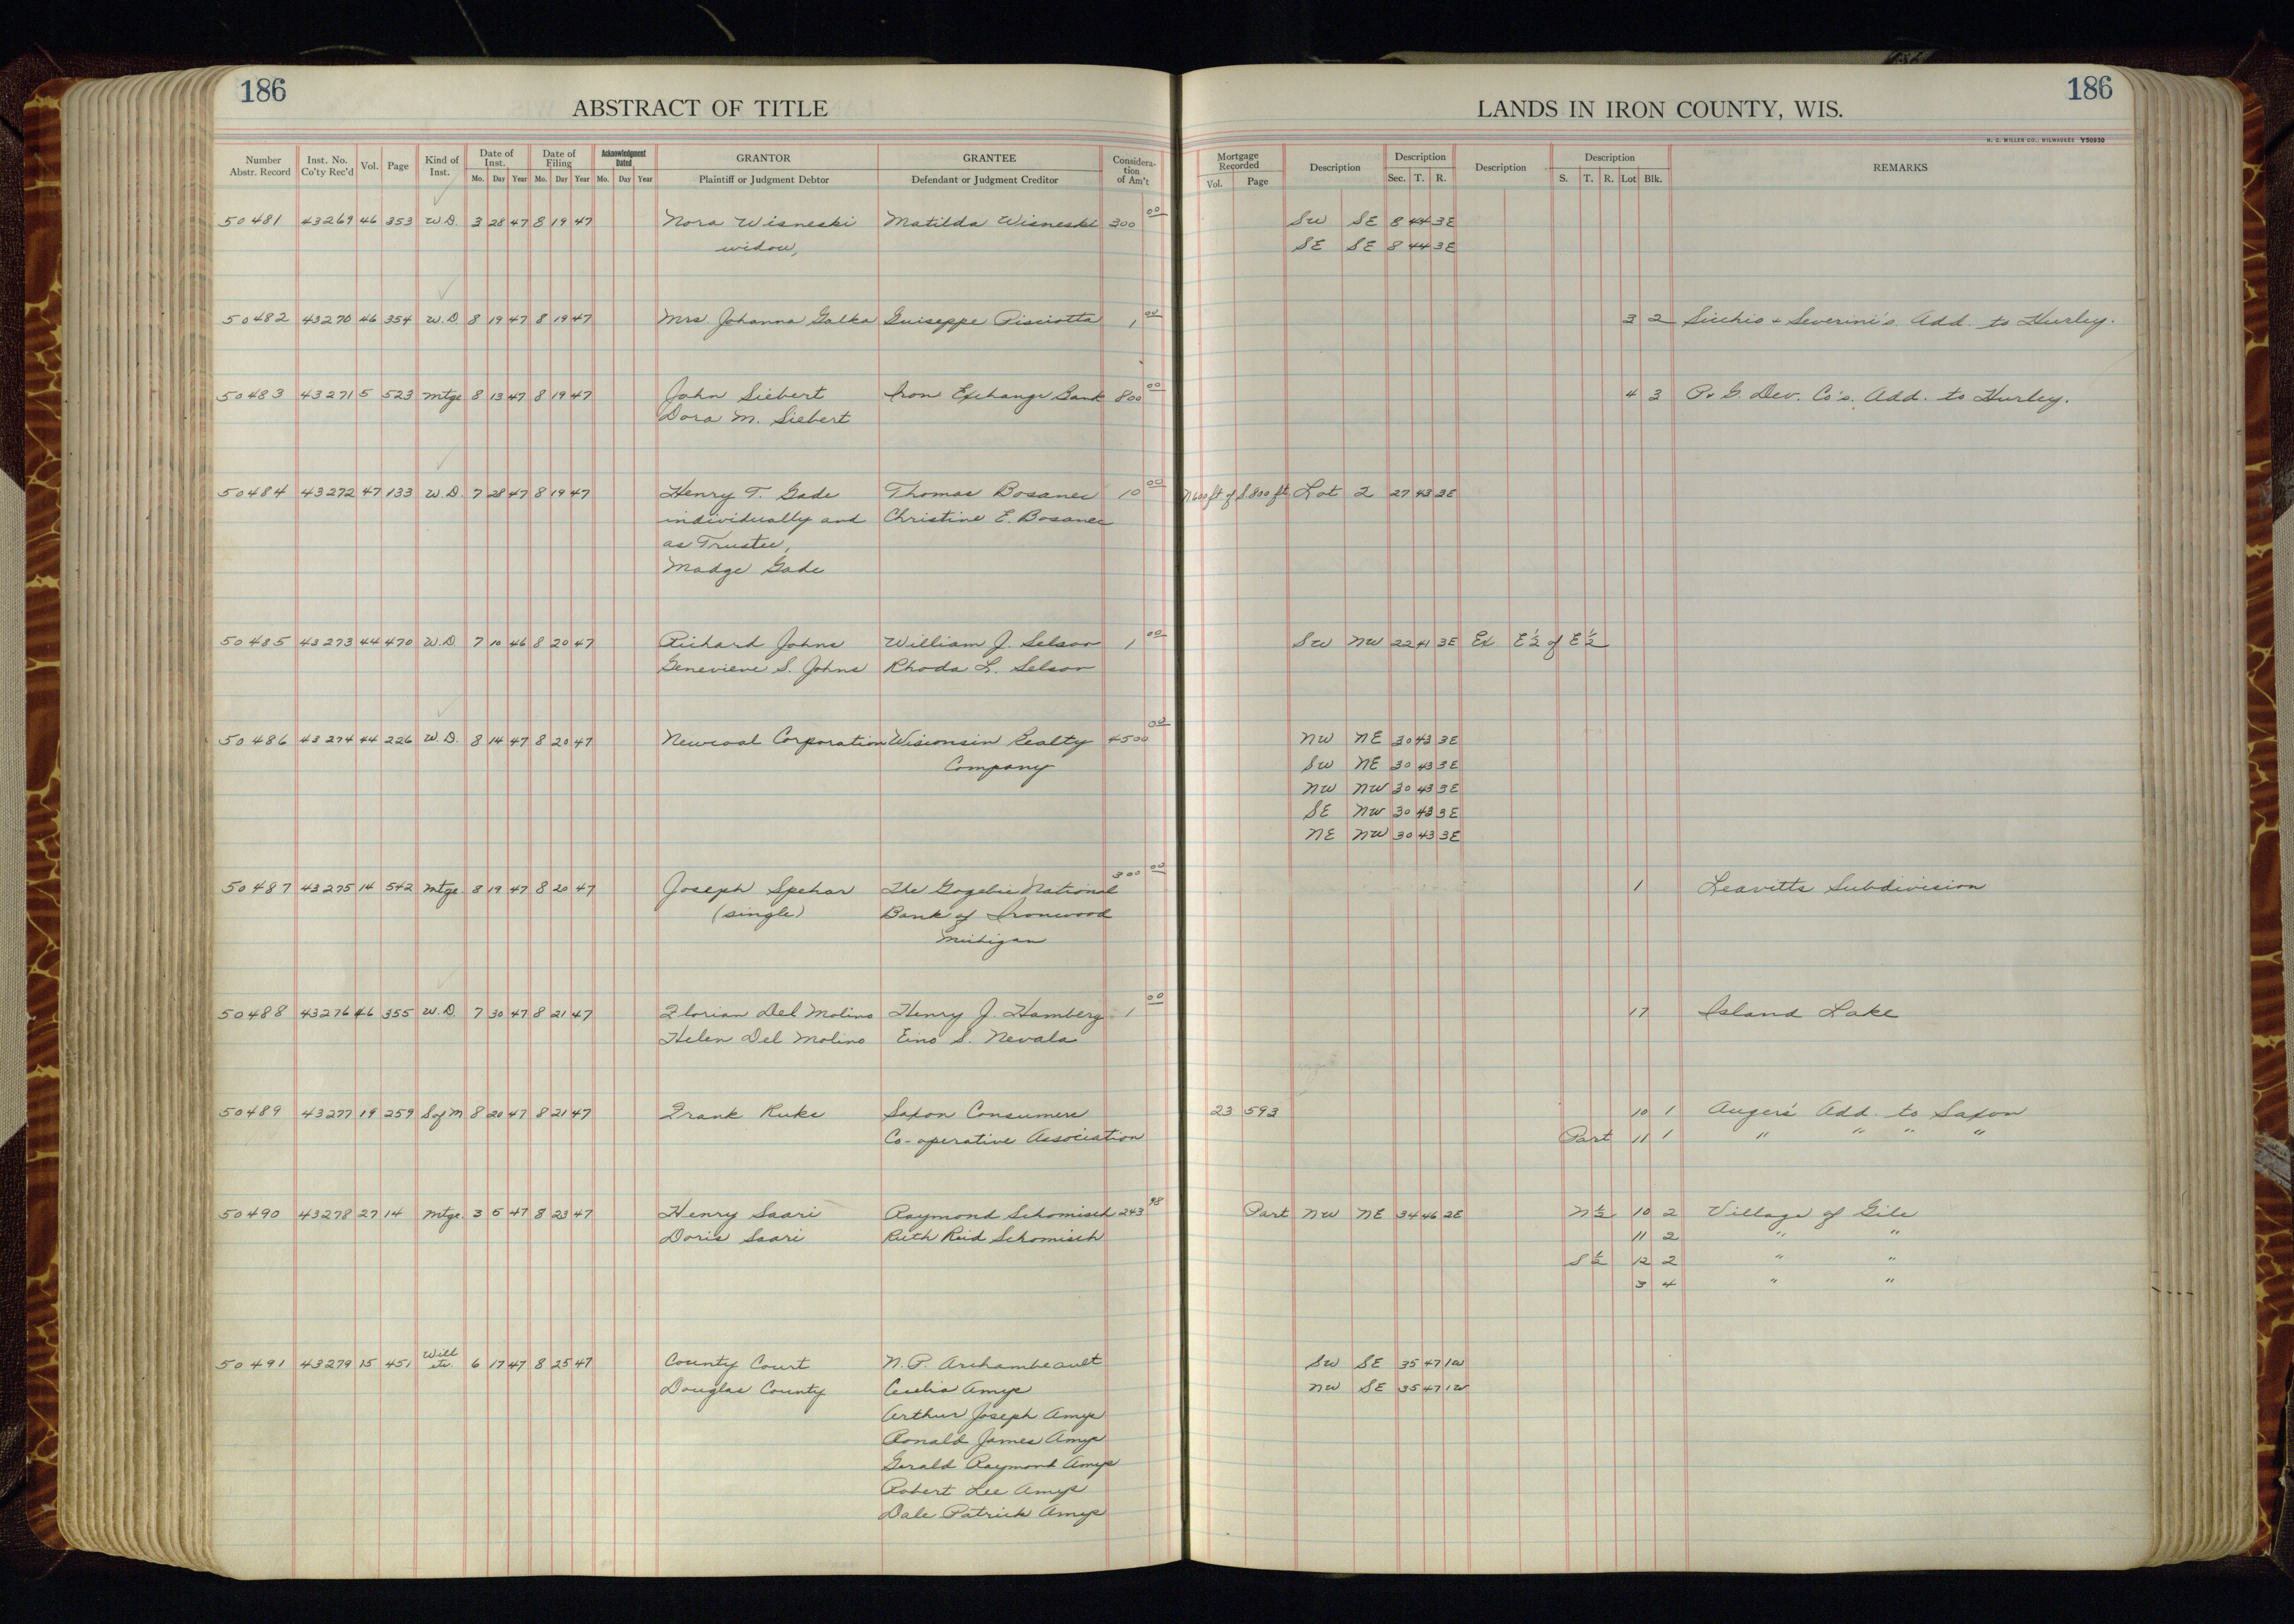 186
186
ABSTRACT OF TITLE
LANDS IN IRON COUNTY, WIS.
H. C. MILLER CO., MILWAUKEE Y50930
Number Abstr. Record Inst. No. Co'ty Rec'd Vol. Page Kind of Inst. Date of Inst. Mo. Day Year Date of Filing Mo. Day Year Acknowledgment Dated Mo. Day Year GRANTOR Plaintiff or Judgment Debtor GRANTEE Defendant or Judgment Creditor Considera-tion of Am't Mortgage Recorded Vol. Page Description Description Sec. T. R. Description Description S. T. R. Lot Blk. REMARKS
50481 43269 46 353 W.D. 3 28 47 8 19 47 Nora Wisneski Matilda Wisneski 300 00 SW SE 8 44 3E
widow, SE SE 8 44 3E
50482 43270 46 354 W.D. 8 19 47 8 19 47 Mrs. Johanna Galka Guiseppe Pisciotta 1 00 3 2 Sicchio & Severini's Add. to Hurley.
50483 43271 5 523 Mtge 8 13 47 8 19 47 John Siebert Iron Exchange Bank 800 00 4 3 P. & G. Dev. Co's. Add. to Hurley.
Dora M. Siebert
50484 43272 47 133 W.D. 7 28 47 8 19 47 Henry T. Gade Thomas Bosanec 10 00 N 600 ft of S. 800 ft. Lot 2 27 43 3E
individually and Christine E. Bosanec
as Trustee,
Madge Gade
50485 43273 44 470 W.D. 7 10 46 8 20 47 Richard Johns William J. Selson 1 00 SW NW 22 41 3E Ex E½ of E½
Genevieve S. Johns Rhoda L. Selson
50486 43274 44 226 W.D. 8 14 47 8 20 47 Newcoal Corporation Wisconsin Realty 4500 00 NW NE 30 43 3E
Company SW NE 30 43 3E
NW NW 30 43 3E
SE NW 30 43 3E
NE NW 30 43 3E
50487 43275 14 542 Mtge. 8 19 47 8 20 47 Joseph Spehar The Gogebic National 300 00 1 Leavitts Subdivision
(single) Bank of Ironwood
Michigan
50488 43276 46 355 W.D. 7 30 47 8 21 47 Florian Del Molino Henry J. Hamberg 1 00 17 Island Lake
Helen Del Molino Eino S. Nevala
50489 43277 19 259 S of M 8 20 47 8 21 47 Frank Ruks Saxon Consumers 23 593 10 1 Auger's Add. to Saxon
Co-operative Association Part 11 1 " " " "
50490 43278 27 14 Mtge. 3 5 47 8 23 47 Henry Saari Raymond Schomisch 243 98 Part NW NE 34 46 2E N½ 10 2 Village of Gile
Doris Saari Ruth Reid Schomisch 11 2 " "
S½ 12 2 " "
3 4 " "
50491 43279 15 451 Will etc. 6 17 47 8 25 47 County Court N.P. Archambeault SW SE 35 47 1W
Douglas County Cecelia Amys NW SE 35 47 1W
Arthur Joseph Amys
Ronald James Amys
Gerald Raymond Amys
Robert Lee Amys
Dale Patrick Amys